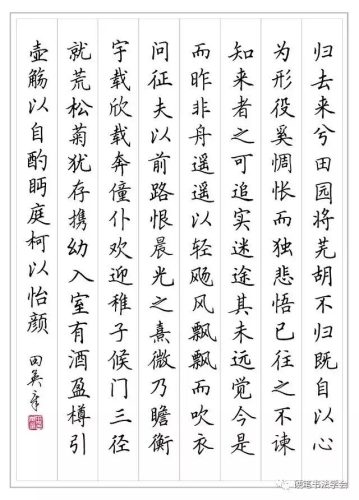 归去来兮田园将芜胡不归既自以心
为形役奚惆怅而独悲悟已往之不谏
知来者之可追实迷途其未远觉今是
而昨非舟遥遥以轻飏风飘飘而吹衣
问征夫以前路恨晨光之熹微乃瞻衡
宇载欣载奔僮仆欢迎稚子候门三径
就荒松菊犹存携幼入室有酒盈樽引
壶觞以自酌眄庭柯以怡颜
田英章
硬笔书法学会